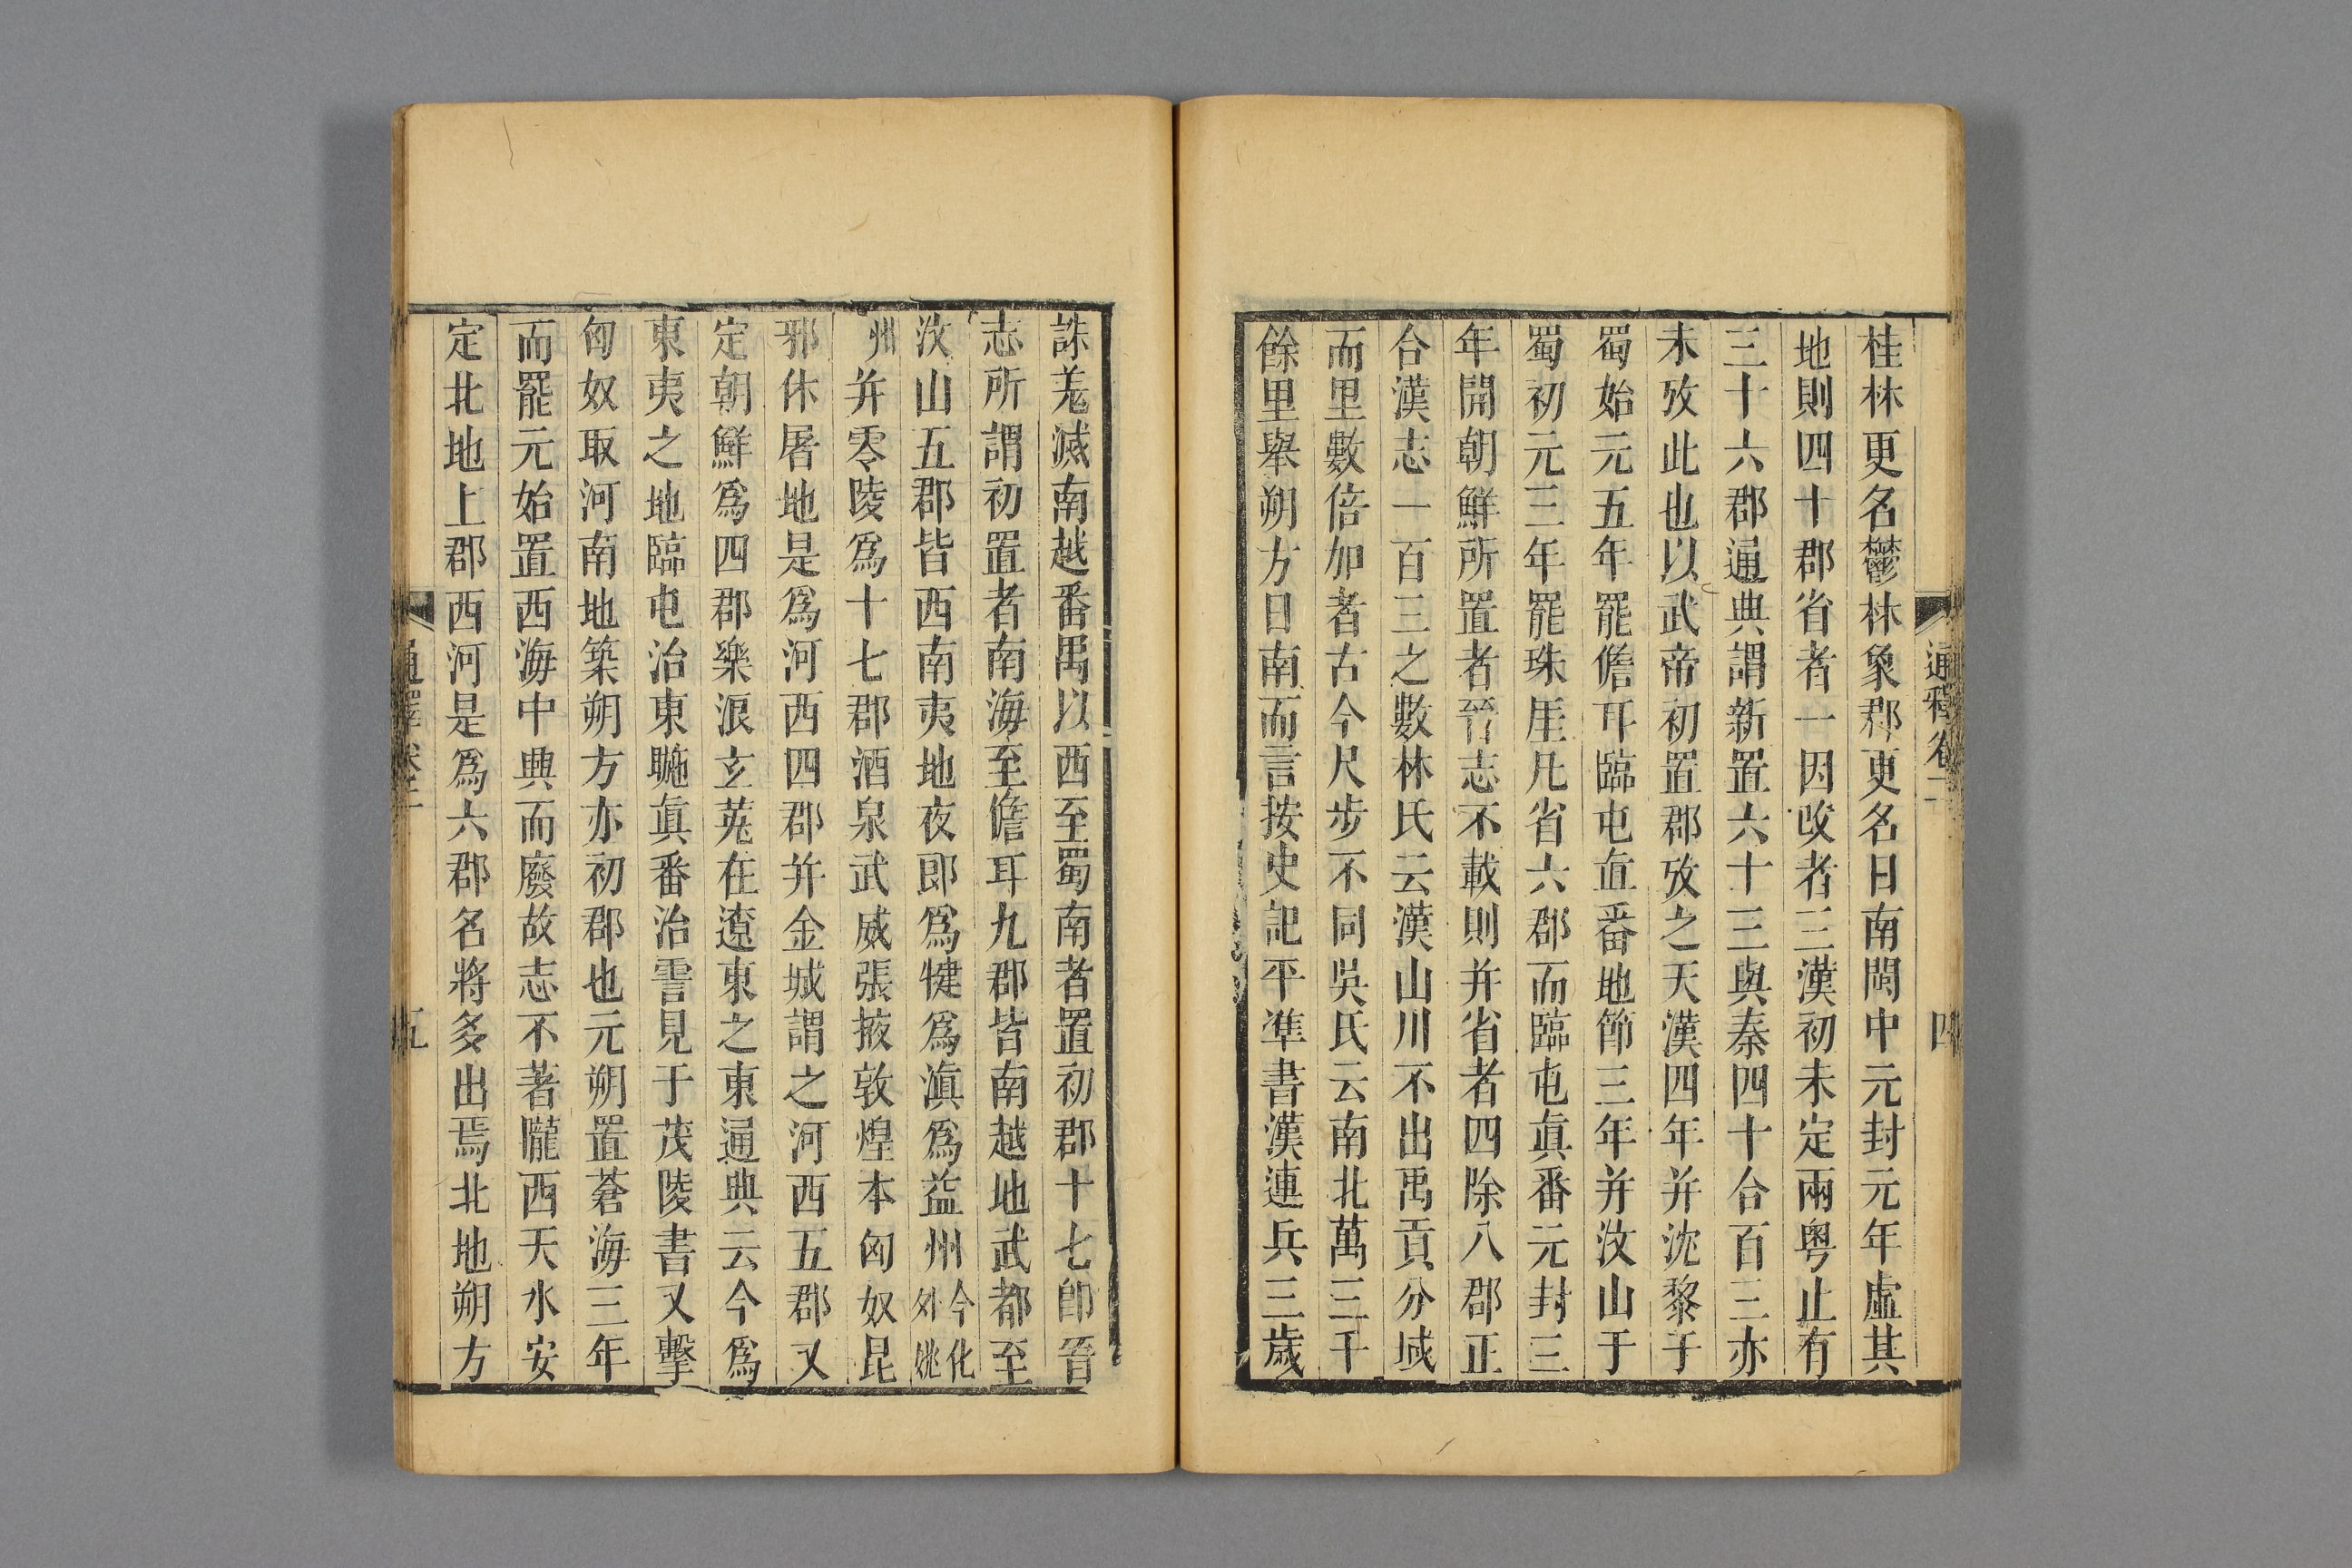 通釋卷二
四
桂林更名鬱林象郡更名日南閩中元封元年虛其
地則四十郡省者一因改者三漢初未定兩粵止有
三十六郡通典謂新置六十三與秦四十合百三亦
未攷此也以武帝初置郡攷之天漢四年并沈黎于
蜀始元五年罷儋耳臨屯眞番地節三年并汶山于
蜀初元三年罷珠厓凡省六郡而臨屯眞番元封三
年開朝鮮所置者晉志不載則并省者四除八郡正
合漢志一百三之數林氏云漢山川不出禹貢分域
而里數倍加者古今尺步不同吳氏云南北萬三千
餘里舉朔方日南而言按史記平準書漢連兵三歲
誅羌滅南越番禺以西至蜀南者置初郡十七卽晉
志所謂初置者南海至儋耳九郡皆南越地武都至
汶山五郡皆西南夷地夜郎爲犍爲滇爲益州今化外姚
州并零陵爲十七郡酒泉武威張掖敦煌本匈奴昆
邪休屠地是爲河西四郡并金城謂之河西五郡又
定朝鮮爲四郡樂浪玄菟在遼東之東通典云今爲
東夷之地臨屯治東暆眞番治霅見于茂陵書又擊
匈奴取河南地築朔方亦初郡也元朔置蒼海三年
而罷元始置西海中興而廢故志不著隴西天水安
定北地上郡西河是爲六郡名將多出焉北地朔方
通釋卷二
五